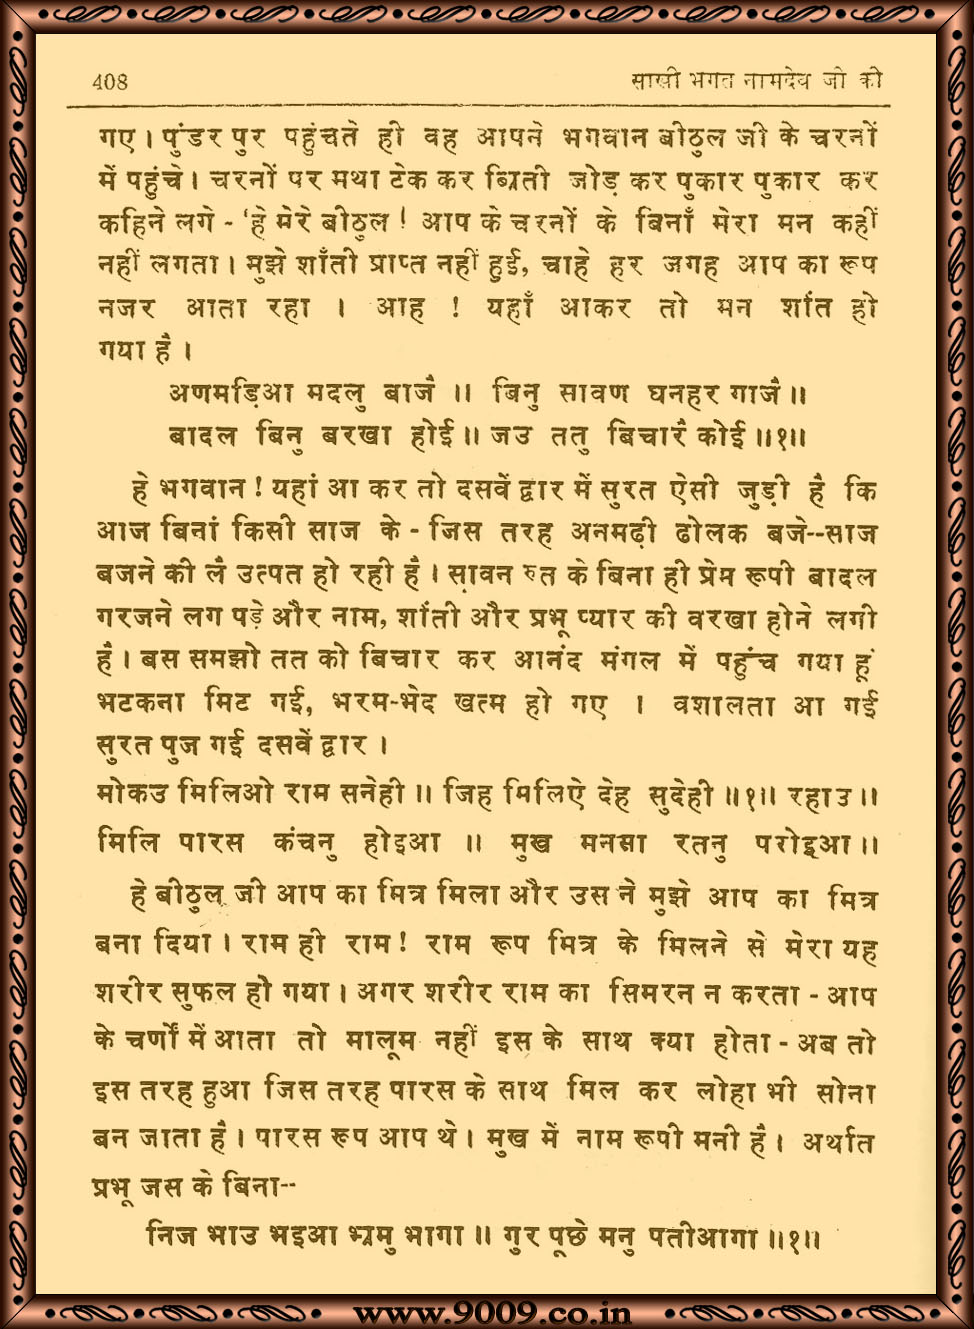 408 साखी भगत नामदेव जी की
गए। पुंडर पुर पहुंचते ही वह आपने भगवान बीठुल जी के चरनों
में पहुंचे। चरनों पर मथा टेक कर ब्रिती जोड़ कर पुकार पुकार कर
कहिने लगे - 'हे मेरे बीठुल ! आप के चरनों के बिनाँ मेरा मन कहीं
नहीं लगता। मुझे शाँती प्राप्त नहीं हुई, चाहे हर जगह आप का रूप
नजर आता रहा । आह ! यहाँ आकर तो मन शांत हो
गया है।
अणमड़िआ मदलु बाजै ॥ बिनु सावण घनहर गाजै॥
बादल बिनु बरखा होई॥ जउ ततु बिचारै कोई॥१॥
हे भगवान ! यहां आ कर तो दसवें द्वार में सुरत ऐसी जुड़ी है कि
आज बिनां किसी साज के - जिस तरह अनमढ़ी ढोलक बजे--साज
बजने की लै उत्पत हो रही है। सावन रुत के बिना ही प्रेम रूपी बादल
गरजने लग पड़े और नाम, शांती और प्रभू प्यार की वरखा होने लगी
है। बस समझो तत को बिचार कर आनंद मंगल में पहुंच गया हूं
भटकना मिट गई, भरम-भेद खत्म हो गए । वशालता आ गई
सुरत पुज गई दसवें द्वार।
मोकउ मिलिओ राम सनेही॥ जिह मिलिऐ देह सुदेही॥१॥ रहाउ॥
मिलि पारस कंचनु होइआ ॥ मुख मनसा रतनु परोइआ॥
हे बीठुल जी आप का मित्र मिला और उस ने मुझे आप का मित्र
बना दिया। राम ही राम! राम रूप मित्र के मिलने से मेरा यह
शरीर सुफल हो गया। अगर शरीर राम का सिमरन न करता - आप
के चर्णों में आता तो मालूम नहीं इस के साथ क्या होता - अब तो
इस तरह हुआ जिस तरह पारस के साथ मिल कर लोहा भी सोना
बन जाता है। पारस रूप आप थे। मुख में नाम रूपी मनी है। अर्थात
प्रभू जस के बिना--
निज भाउ भइआ भ्रमु भागा॥ गुर पूछे मनु पतीआगा॥१॥
www.9009.co.in